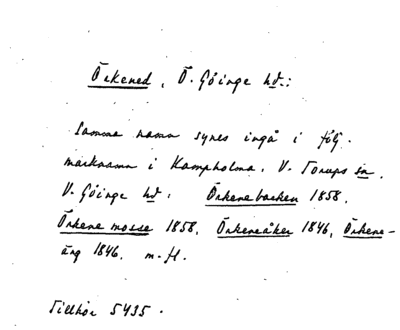 Örkened, Ö. Göinge hd.:
Samma namn synes ingå i följ.
marknamn i Kampholma, V. Torups sn.
V. Göinge hd: Örkenebacken 1858.
Örkene mosse 1858, Örkeneåker 1846, Örkene-
äng 1846. m. fl.
Tillhör 5435.